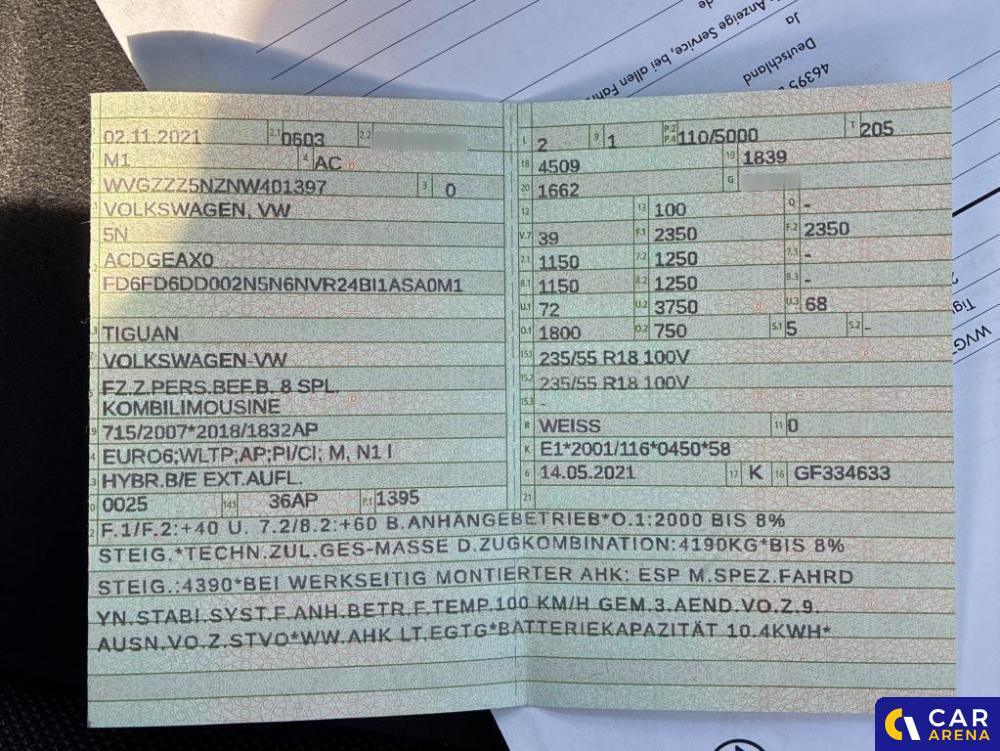 e Anzeige Service, bei allen Fahr
de
Ja
Deutschland
46395
02.11.2021 2.1 0603 2.2
M1 4 AC
WVGZZZ5NZNW401397 3 0
VOLKSWAGEN, VW
5N
ACDGEAX0
FD6FD6DD002N5N6NVR24BI1ASA0M1
TIGUAN
VOLKSWAGEN-VW
FZ.Z.PERS.BEF.B. 8 SPL.
KOMBILIMOUSINE
715/2007*2018/1832AP
EURO6;WLTP;AP;PI/CI; M, N1 I
HYBR.B/E EXT.AUFL.
0025 14.1 36AP P.1 1395
L 2 9 1 P.2 P.4 110/5000 T 205
18 4509 19 1839
20 1662 G
12 13 100 Q -
V.7 39 F.1 2350 F.2 2350
7.1 1150 7.2 1250 7.3 -
8.1 1150 8.2 1250 8.3 -
U.1 72 U.2 3750 U.3 68
O.1 1800 O.2 750 S.1 5 S.2 -
15.1 235/55 R18 100V
15.2 235/55 R18 100V
15.3 -
R WEISS 11 0
K E1*2001/116*0450*58
6 14.05.2021 17 K 16 GF334633
21
F.1/F.2:+40 U. 7.2/8.2:+60 B.ANHÄNGEBETRIEB*O.1:2000 BIS 8%
STEIG.*TECHN.ZUL.GES-MASSE D.ZUGKOMBINATION:4190KG*BIS 8%
STEIG.:4390*BEI WERKSEITIG MONTIERTER AHK: ESP M.SPEZ.FAHRD
YN.STABI.SYST.F.ANH.BETR.F.TEMP.100 KM/H GEM.3.AEND.VO.Z.9.
AUSN.VO.Z.STVO*WW.AHK LT.EGTG*BATTERIEKAPAZITÄT 10.4KWH*
Tig
WVG
CAR
ARENA